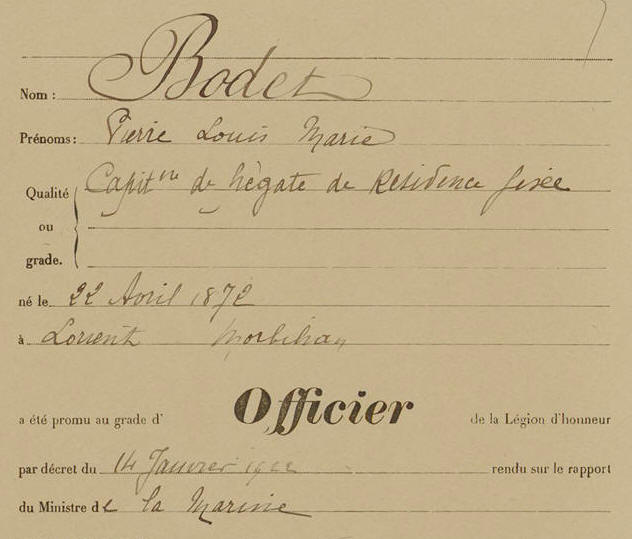 Nom : Bodet
Prénoms : Pierre Louis Marie
Qualité Capitne de frégate de Résidence fixe
ou
grade.
né le 22 Avril 1872
à Lorient Morbihan
a été promu au grade d' Officier de la Légion d'honneur
par décret du 14 Janvier 1922 rendu sur le rapport
du Ministre de la Marine